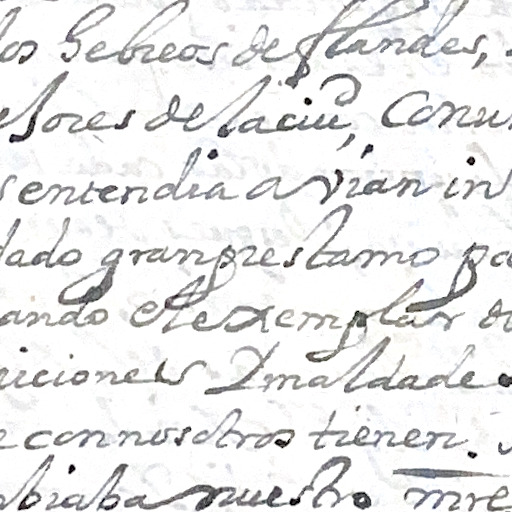 los hebreos de flandes,
esores de la ciud, Con un
s entendia avian in
dado gran prestamo pa
ando el exemplar de
uiciones I maldade
e con nosotros tienen.
biaba nuestro mre